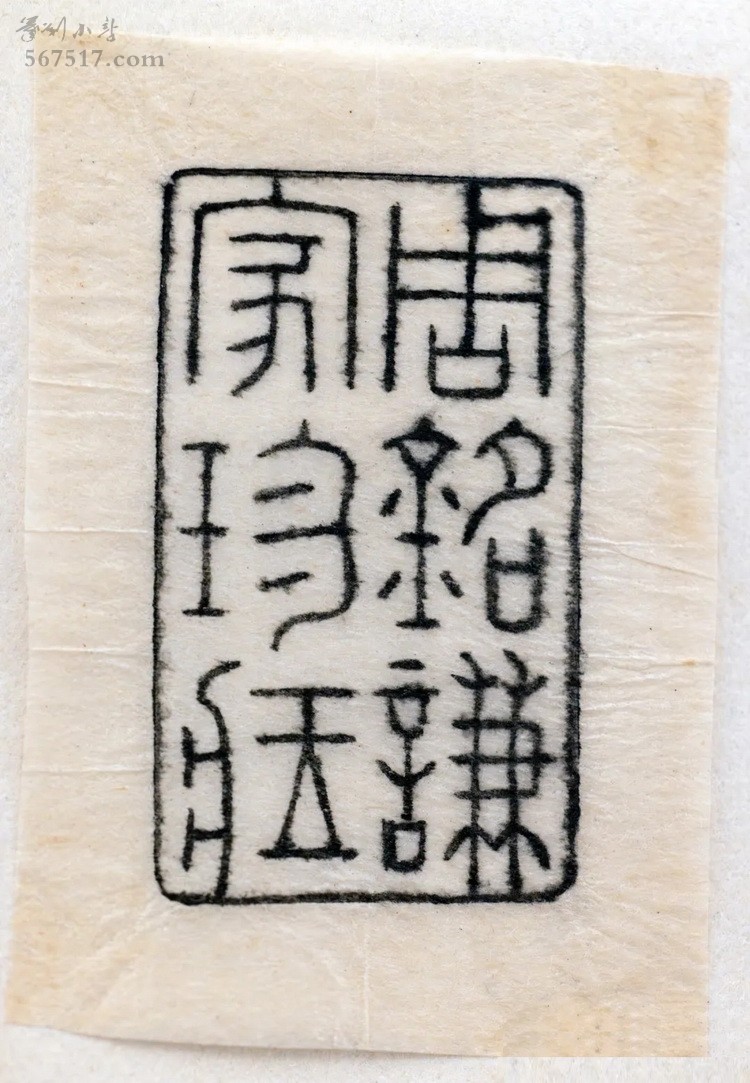 篆刻小站
567517.com
周銘謙
家珍